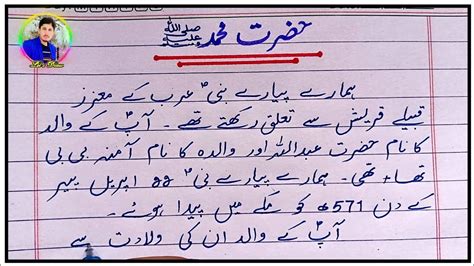 حضرت محمد ﷺ
ہمارے پیارے نبیؐ عرب کے معزز
قبیلے قریش سے تعلق رکھتے تھے۔ آپؐ کے والد
کا نام حضرت عبداللہ اور والدہ کا نام آمنہ بی بی
تھا۔ تھی۔ ہمارے پیارے نبیؐ 22 اپریل پیر
کے دن 571ء کو مکے میں پیدا ہوئے۔
آپؐ کے والد ان کی ولادت سے